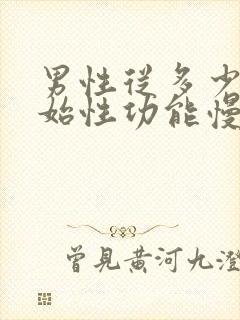 男性從多少
始性功能慢
曾見黃河九澄